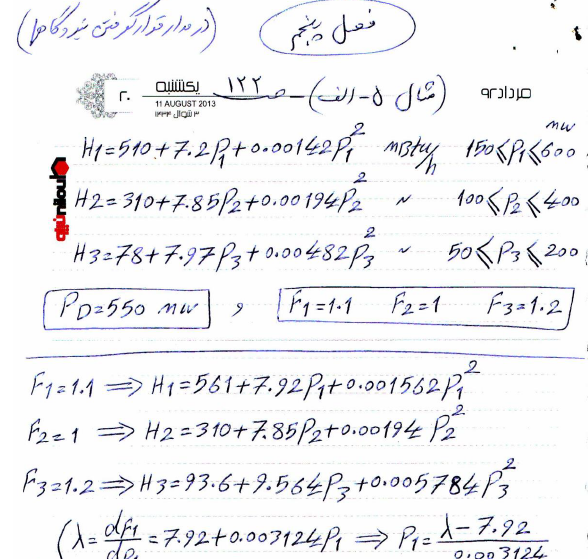 فصل پنجم (در مدار قرار گرفتن نیروگاهها)
مرداد ۹۲ (مثال ۵-الف)-ص ۱۲۲ یکشنبه ۲۰
11 AUGUST 2013
شوال ۱۴۳۴
H1=510+7.2P1+0.00142P1^2 MBtu/h 150≤P1≤600 MW
H2=310+7.85P2+0.00194P2^2 ~ 100≤P2≤400
H3=78+7.97P3+0.00482P3^2 ~ 50≤P3≤200
PD=550 MW و F1=1.1 F2=1 F3=1.2
F1=1.1 ⟹ H1=561+7.92P1+0.001562P1^2
F2=1 ⟹ H2=310+7.85P2+0.00194P2^2
F3=1.2 ⟹ H3=93.6+9.564P3+0.005784P3^2
(λ=dF1/dP1=7.92+0.003124P1 ⟹ P1=λ-7.92/0.003124